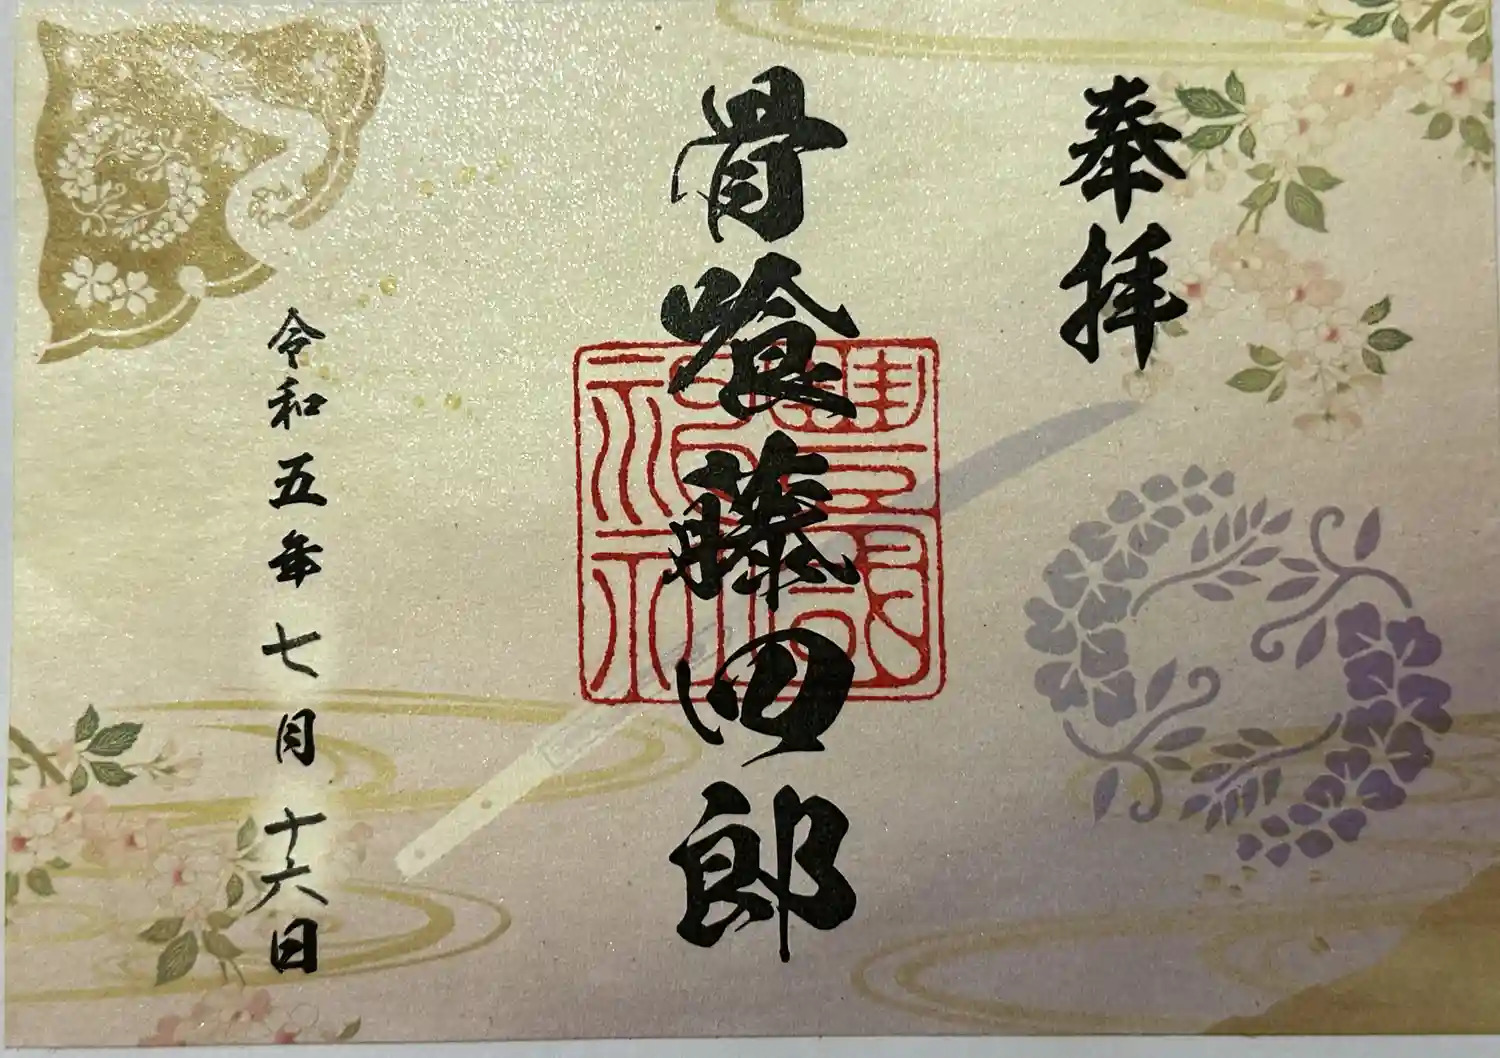 奉拝
骨喰藤四郎
建勲神社
令和五年七月十六日